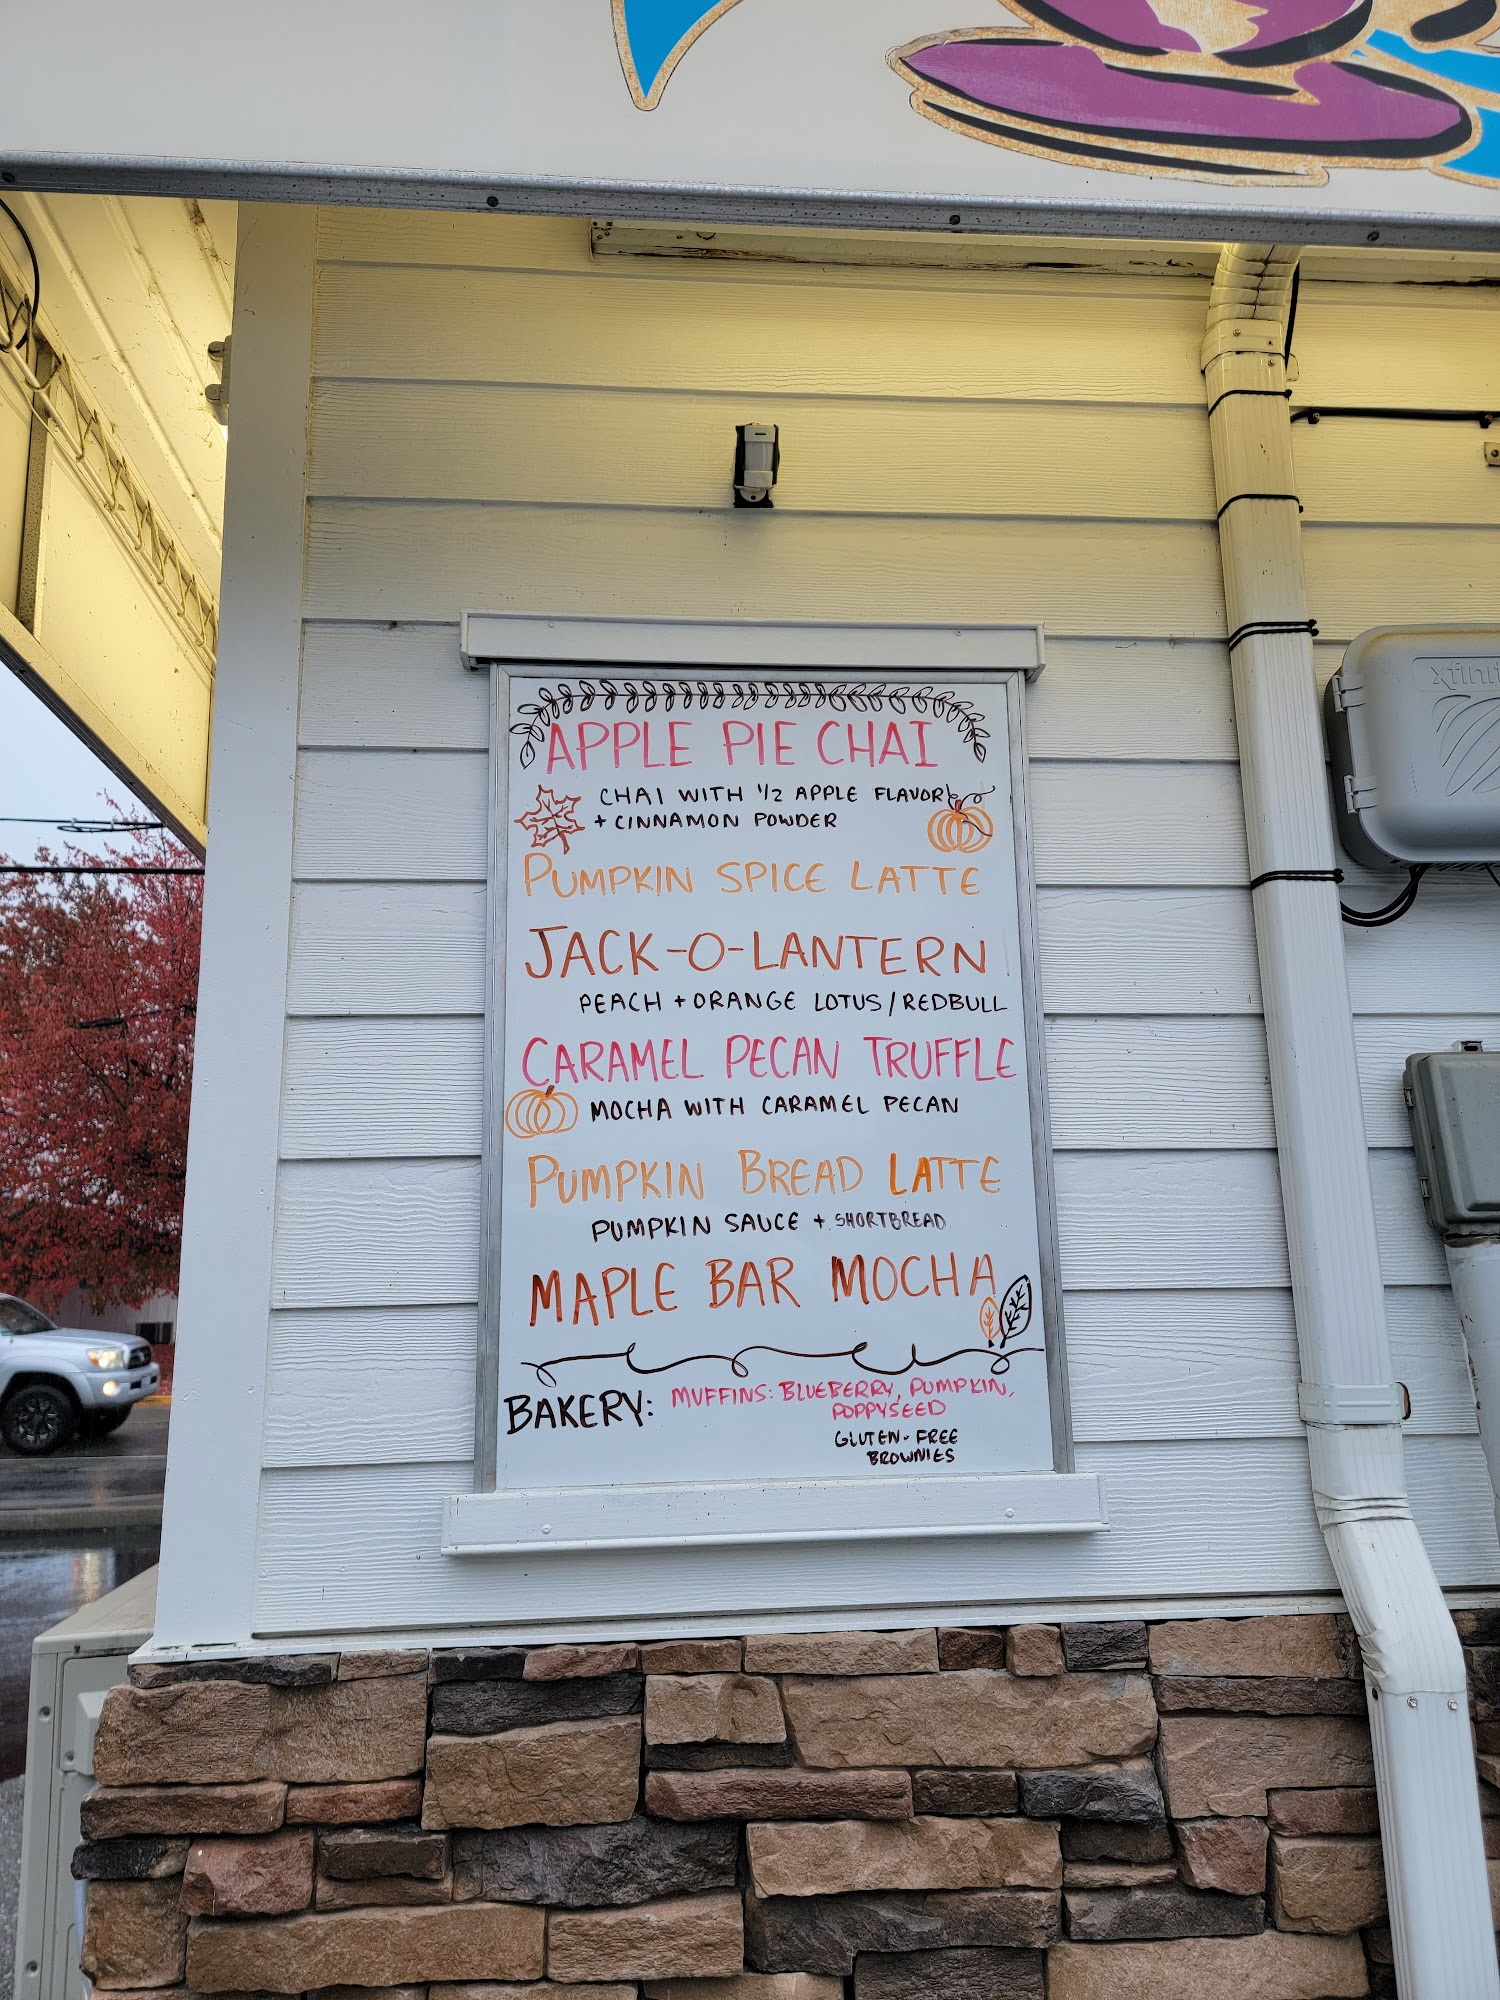 APPLE PIE CHAI
CHAI WITH 1/2 APPLE FLAVOR
+ CINNAMON POWDER
PUMPKIN SPICE LATTE
JACK-O-LANTERN
PEACH + ORANGE LOTUS/REDBULL
CARAMEL PECAN TRUFFLE
MOCHA WITH CARAMEL PECAN
PUMPKIN BREAD LATTE
PUMPKIN SAUCE + SHORTBREAD
MAPLE BAR MOCHA
BAKERY: MUFFINS: BLUEBERRY, PUMPKIN,
POPPYSEED
GLUTEN-FREE
BROWNIES
xfinit